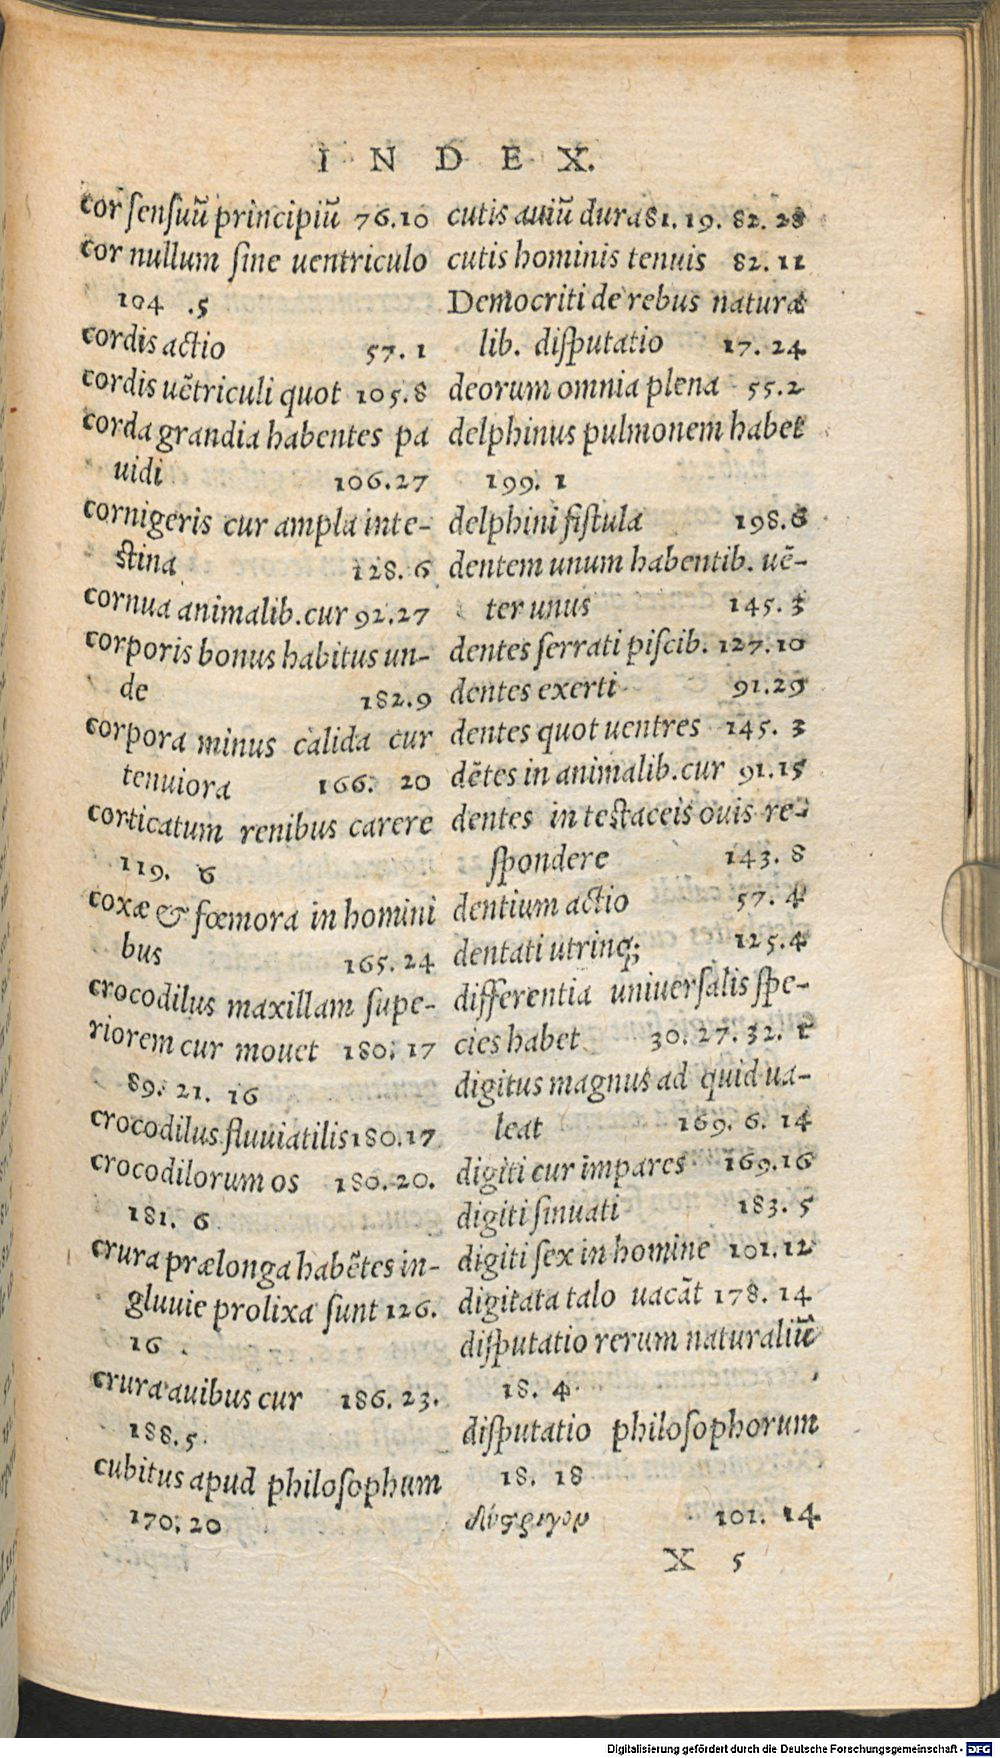 INDEX.
cor ſenſuū principiū 76.10
cor nullum ſine uentriculo
104 .5
cordis actio 57.1
cordis uētriculi quot 105.8
corda grandia habentes pa
uidi 106.27
cornigeris cur ampla inte-
ſtina 128.6
cornua animalib. cur 92.27
corporis bonus habitus un-
de 182.9
corpora minus calida cur
tenuiora 166. 20
corticatum renibus carere
119. 6
coxæ & fœmora in homini
bus 165.24
crocodilus maxillam ſupe-
riorem cur mouet 180. 17
89. 21. 16
crocodilus fluuiatilis 180.17
crocodilorum os 180.20.
181. 6
crura prælonga habētes in-
gluuie prolixa ſunt 126.
16
crura auibus cur 186.23.
188.5.
cubitus apud philoſophum
170. 20
cutis auiū dura 81. 19. 82. 28
cutis hominis tenuis 82. 11
Democriti de rebus natura
lib. diſputatio 17. 24
deorum omnia plena 55.2
delphinus pulmonem habet
199. 1
delphini fiſtula 198.6
dentem unum habentib. uē-
ter unus 145. 3
dentes ſerrati piſcib. 127.10
dentes exerti 91.29
dentes quot uentres 145. 3
dētes in animalib. cur 91.15
dentes in teſtaceis ouis re-
ſpondere 143. 8
dentium actio 57. 4
dentati utrinq; 125.4
differentia uniuerſalis ſpe-
cies habet 30. 27. 32. 1
digitus magnus ad quid ua-
leat 169. 6. 14
digiti cur impares 169.16
digiti ſinuati 183. 5
digiti ſex in homine 101.12
digitata talo uacāt 178. 14
diſputatio rerum naturaliū
18. 4.
diſputatio philoſophorum
18. 18
101. 14
X 5
Digitalisierung gefördert durch die Deutsche Forschungsgemeinschaft - DFG